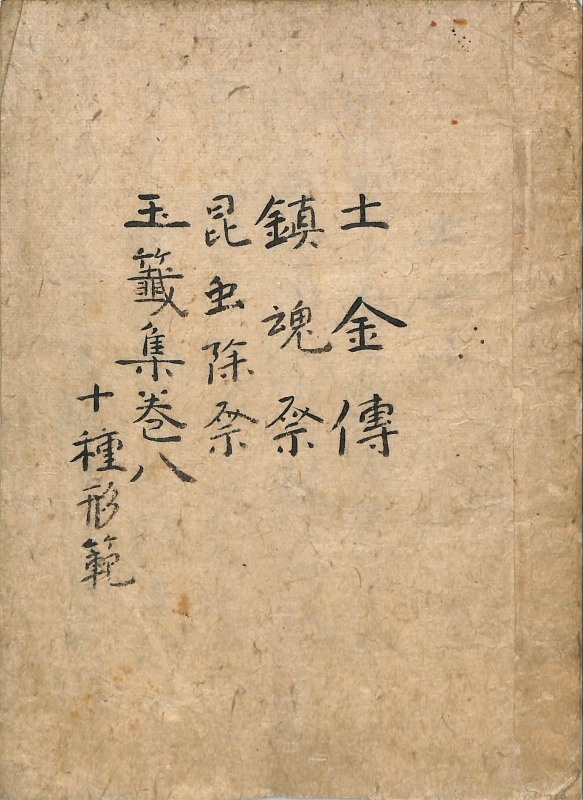 土金傳
鎮魂祭
昆虫除祭
玉籤集巻八
十種形範